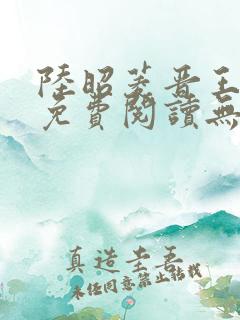 陸昭菱晉王
免費閱讀無
真造圭吾
未经同意禁止转载